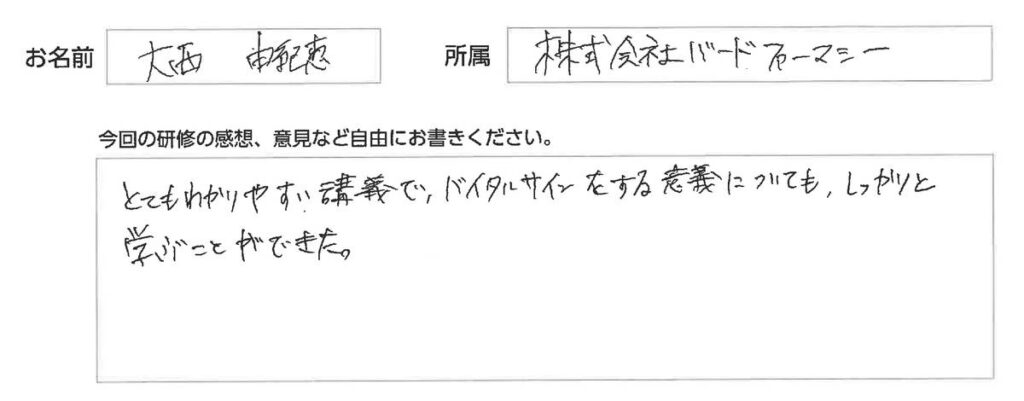 お名前 大西 由紀恵 所属 株式会社バードファーマシー
今回の研修の感想、意見など自由にお書きください。
とてもわかりやすい講義で、バイタルサインをする意義についても、しっかりと
学ぶことができた。